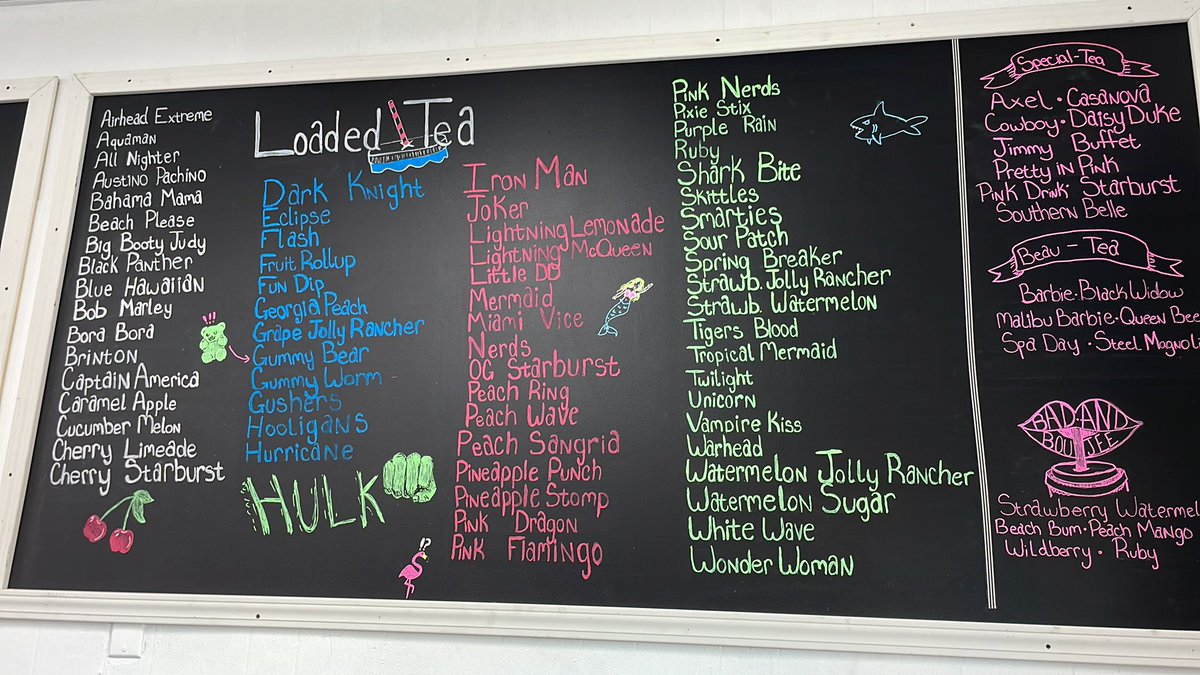 Airhead Extreme
Aquaman
All Nighter
Austino Pachino
Bahama Mama
Beach Please
Big Booty Judy
Black Panther
Blue Hawaiian
Bob Marley
Bora Bora
Brinton
Captain America
Caramel Apple
Cucumber Melon
Cherry Limeade
Cherry Starburst
Loaded Tea
Dark Knight
Eclipse
Flash
Fruit Rollup
Fun Dip
Georgia Peach
Grape Jolly Rancher
!!
Gummy Bear
Gummy Worm
Gushers
Hooligans
Hurricane
HULK
Iron Man
Joker
Lightning Lemonade
Lightning McQueen
Little DD
Mermaid
Miami Vice
Nerds
OG Starburst
Peach Ring
Peach Wave
Peach Sangria
Pineapple Punch
Pineapple Stomp
Pink Dragon
Pink Flamingo
Pink Nerds
Pixie Stix
Purple Rain
Ruby
Shark Bite
Skittles
Smarties
Sour Patch
Spring Breaker
Strawb. Jolly Rancher
Strawb. Watermelon
Tigers Blood
Tropical Mermaid
Twilight
Unicorn
Vampire Kiss
Warhead
Watermelon Jolly Rancher
Watermelon Sugar
White Wave
Wonder Woman
Special-Tea
Axel • Casanova
Cowboy • Daisy Duke
Jimmy Buffet
Pretty in Pink
Pink Drink • Starburst
Southern Belle
Beau-Tea
Barbie • Black Widow
Malibu Barbie • Queen Bee
Spa Day • Steel Magnoli
BAD AND
BOUJEE
Strawberry Watermel
Beach Bum • Peach Mango
Wildberry • Ruby